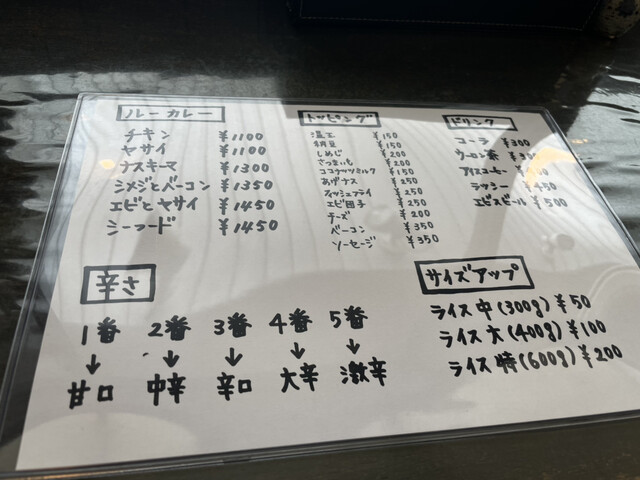 ルーカレー
チキン ¥1100
ヤサイ ¥1100
ナスキーマ ¥1300
シメジとベーコン ¥1350
エビとヤサイ ¥1450
シーフード ¥1450
トッピング
温玉 ¥150
納豆 ¥150
しめじ ¥200
さつまいも ¥200
ココナッツミルク ¥150
あげナス ¥250
フィッシュフライ ¥250
エビ団子 ¥250
チーズ ¥200
ベーコン ¥350
ソーセージ ¥350
ドリンク
コーラ ¥300
ウーロン茶
アイスコーヒー
ラッシー
エビスビール ¥500
辛さ
1番 2番 3番 4番 5番
↓ ↓ ↓ ↓ ↓
甘口 中辛 辛口 大辛 激辛
サイズアップ
ライス 中(300g) ¥50
ライス 大(400g) ¥100
ライス 特(600g) ¥200